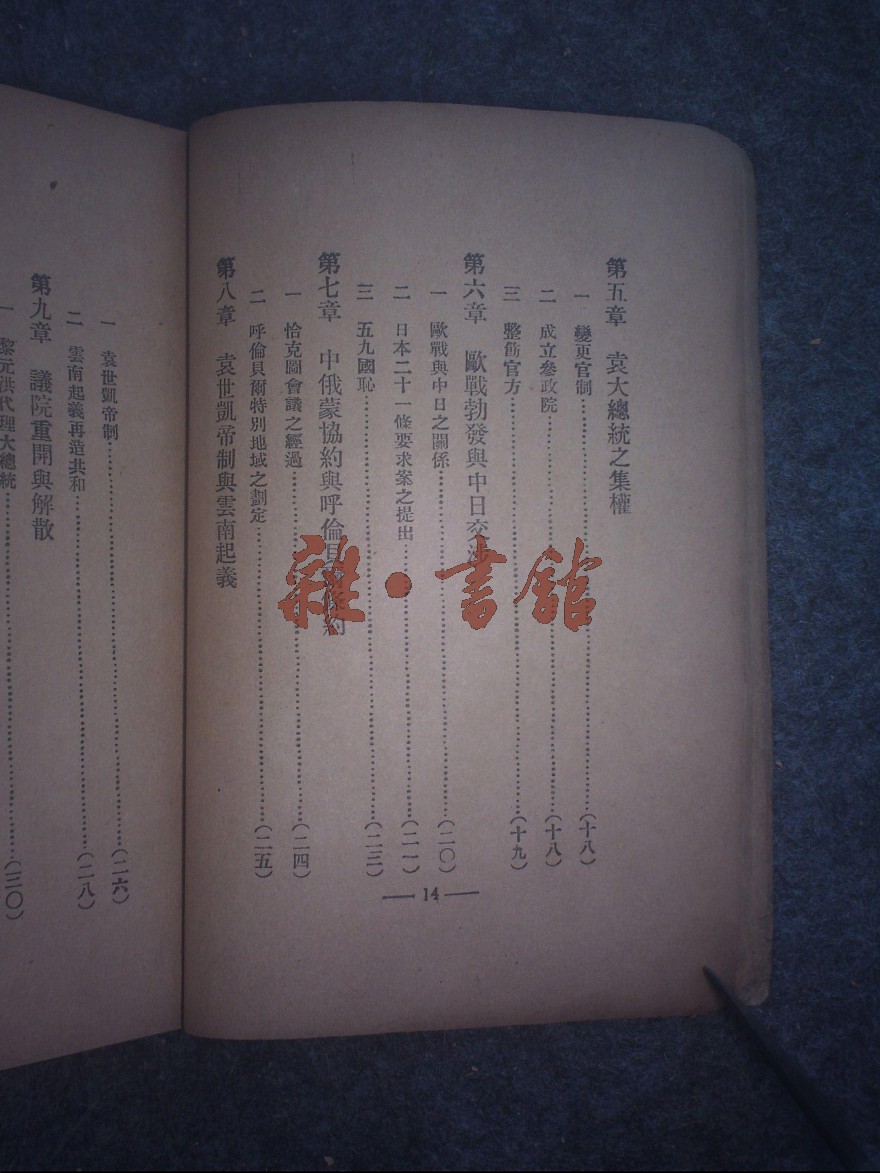 第五章　袁大總統之集權
一　變更官制……(十八)
二　成立參政院……(十八)
三　整飭官方……(十九)
第六章　歐戰勃發與中日交涉
一　歐戰與中日之關係……(二〇)
二　日本二十一條要求案之提出……(二一)
三　五九國恥……(二三)
第七章　中俄蒙協約與呼倫貝爾條約
一　恰克圖會議之經過……(二四)
二　呼倫貝爾特別地域之劃定……(二五)
第八章　袁世凱帝制與雲南起義
— 14 —
一　袁世凱帝制……(二六)
二　雲南起義再造共和……(二八)
第九章　議院重開與解散
一　黎元洪代理大總統……(三〇)
雜·書館